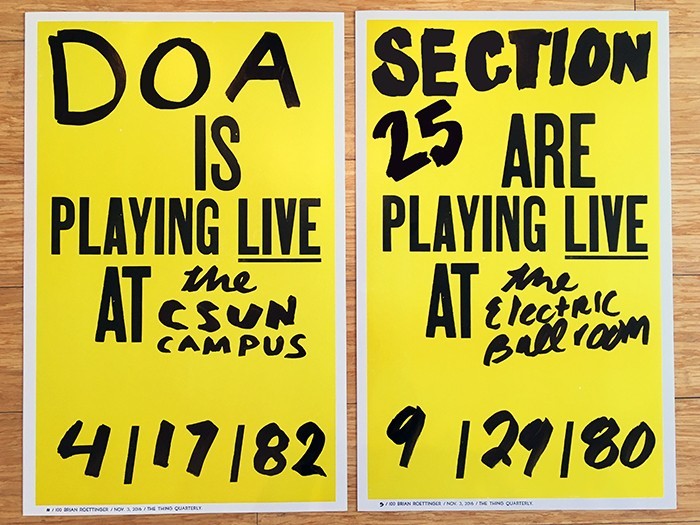 DOA
IS
PLAYING LIVE
AT the
CSUN
CAMPUS
4/17/82
/100 BRIAN ROETTINGER / NOV. 3, 2016 / THE THING QUARTERLY
SECTION
25 ARE
PLAYING LIVE
AT the
Electric
Ballroom
9/29/80
/100 BRIAN ROETTINGER / NOV. 3, 2016 / THE THING QUARTERLY